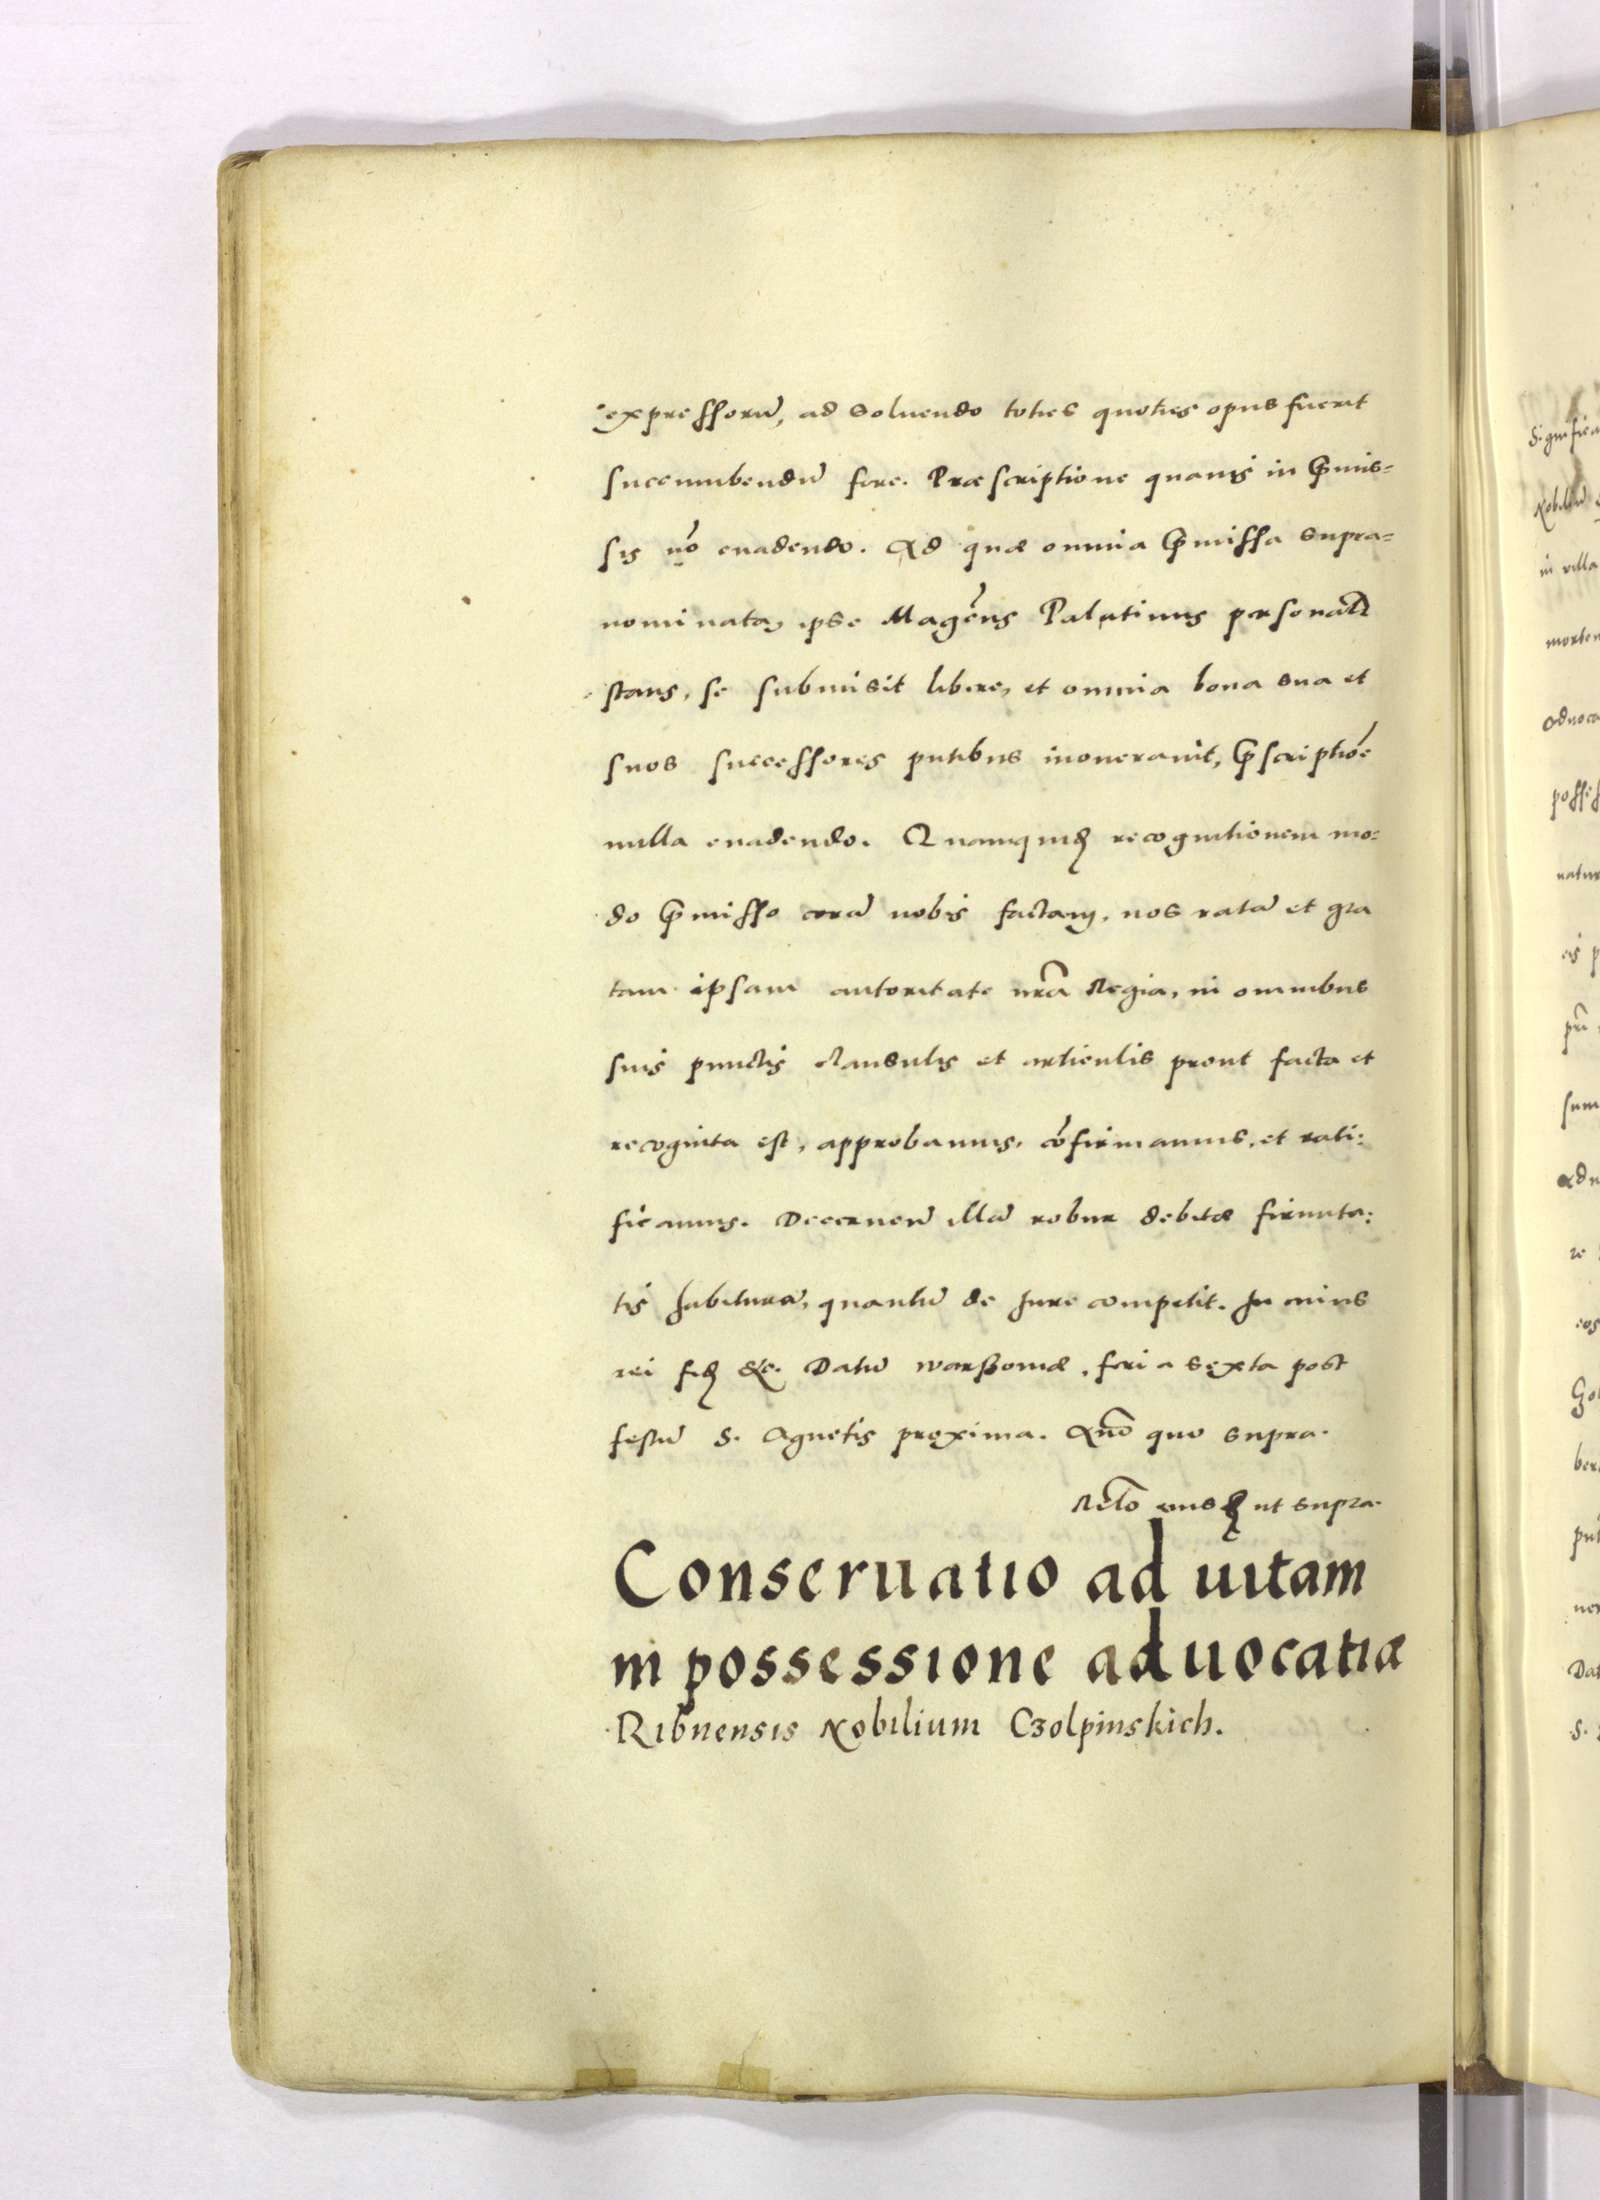 expressorũ, ad soluendo toties quoties opus fuerit
succumbendũ fore. Præscriptione quauis in p̃mis=
sis nõ euadendo. Ad quæ omnia p̃missa supra=
nominata, ipse Mag̃cus Palatinus personalr̃
stans, se submisit libere, et omnia bona sua et
suos successores pñtibus inonerauit, p̃scriptiõe
nulla euadendo. Quamquidẽ recognitionem mo=
do p̃misso corã nobis factam, nos ratã et gra
tam ipsam autoritate nr̃a Regia, in omnibus
suis punctis clausulis et articulis prout facta et
recognita est, approbamus, cõfirmamus, et rati:
ficamus. Decernen̄ illã robur debitæ firmita:
tis habiturã, quantũ de Jure competit. In cuius
rei fidẽ &c. Datũ warßouiæ, feria sexta post
festũ S. Agnetis proxima. Añno quo supra.
Relõ eiusdẽ ut supra.
Conseruatio ad uitam
in possessione aduocatiæ
Ribnensis Nobilium Czolpinskich.
Significa
Nobiliũ
in villa
morten
Aduoca
posses
natur
eis p
pri
sum
Adu
re
eos
Gol
ber
put
ner
Dat
S.